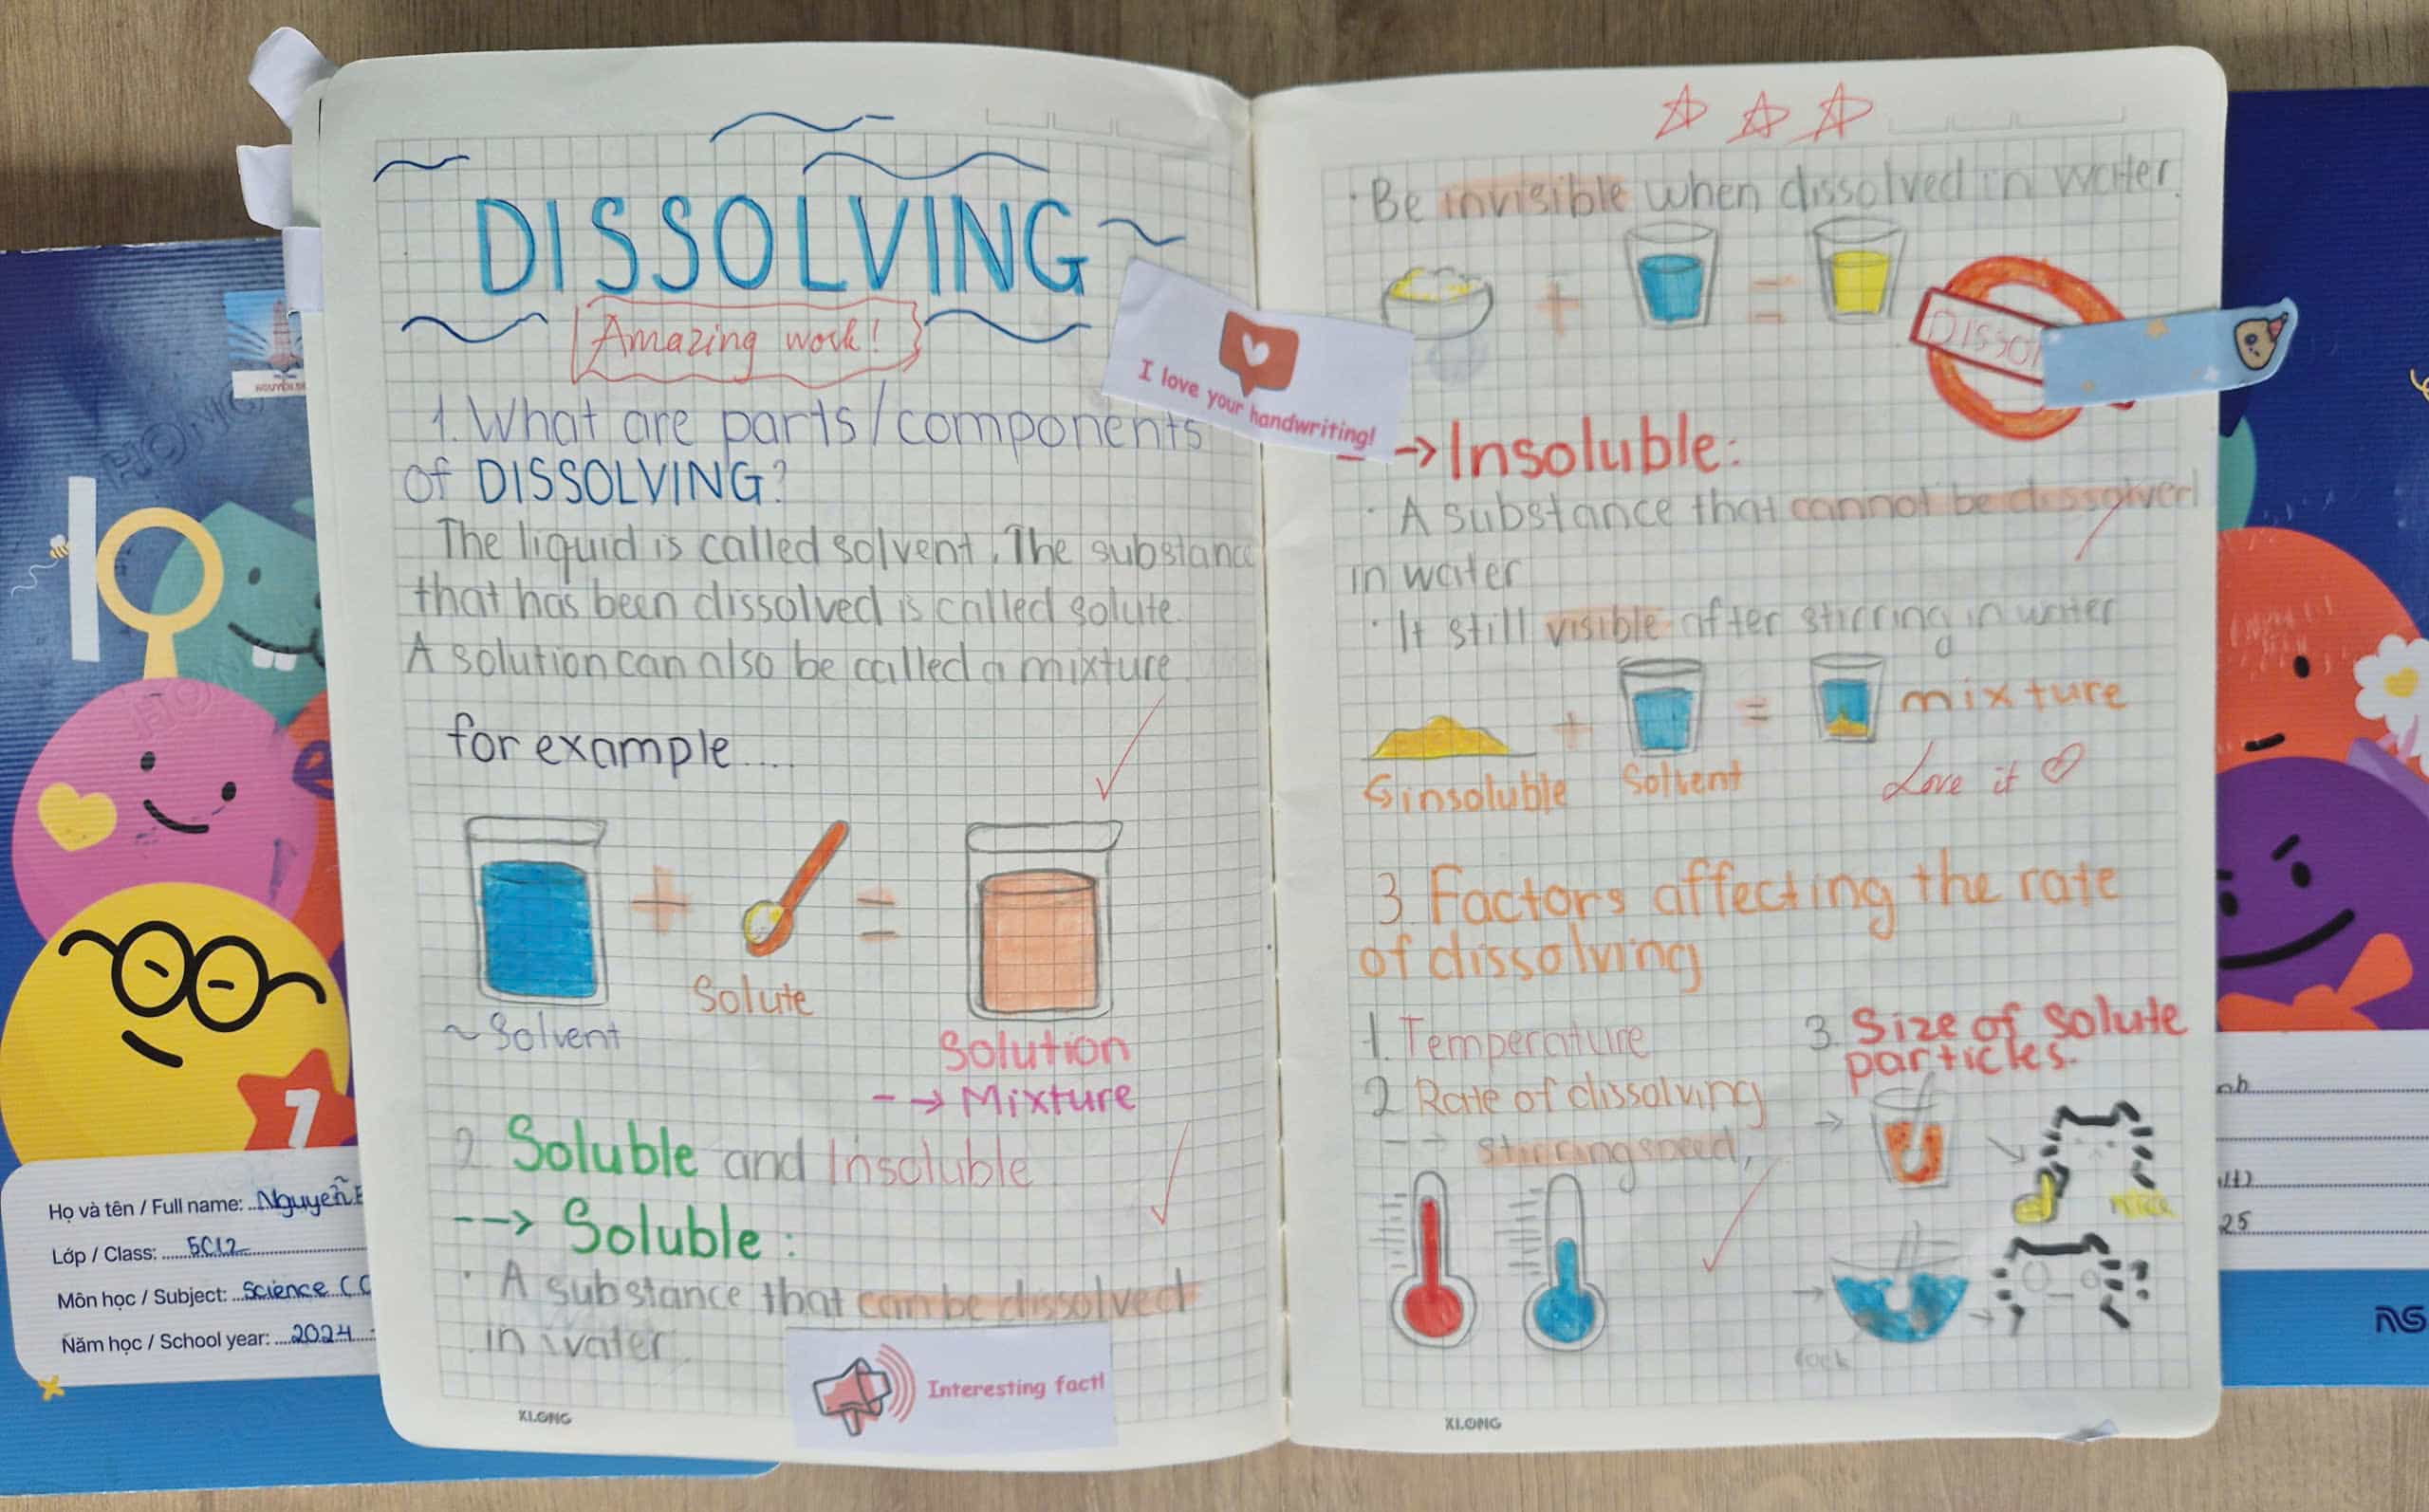 DISSOLVING
Amazing work!
I love your handwriting!
1. What are parts/components
of DISSOLVING?
The liquid is called solvent. The substance
that has been dissolved is called solute.
A solution can also be called a mixture.
for example....
+
=
Solute
~Solvent
Solution
--> Mixture
2. Soluble and Insoluble
--> Soluble:
· A substance that can be dissolved
in water.
Interesting fact!
XLONG
· Be invisible when dissolved in water.
+
=
Dissol
→ Insoluble:
· A substance that cannot be dissolved
in water
· It still visible after stirring in water
+
=
mixture
insoluble
Solvent
Love it
3. Factors affecting the rate
of dissolving
1. Temperature
2. Rate of dissolving
stirring speed,
3. Size of solute
particles.
rock
XLONG
Họ và tên / Full name: Nguyễn
Lớp / Class: 5C12
Môn học / Subject: Science (C
Năm học / School year: 2024
1
25
NS